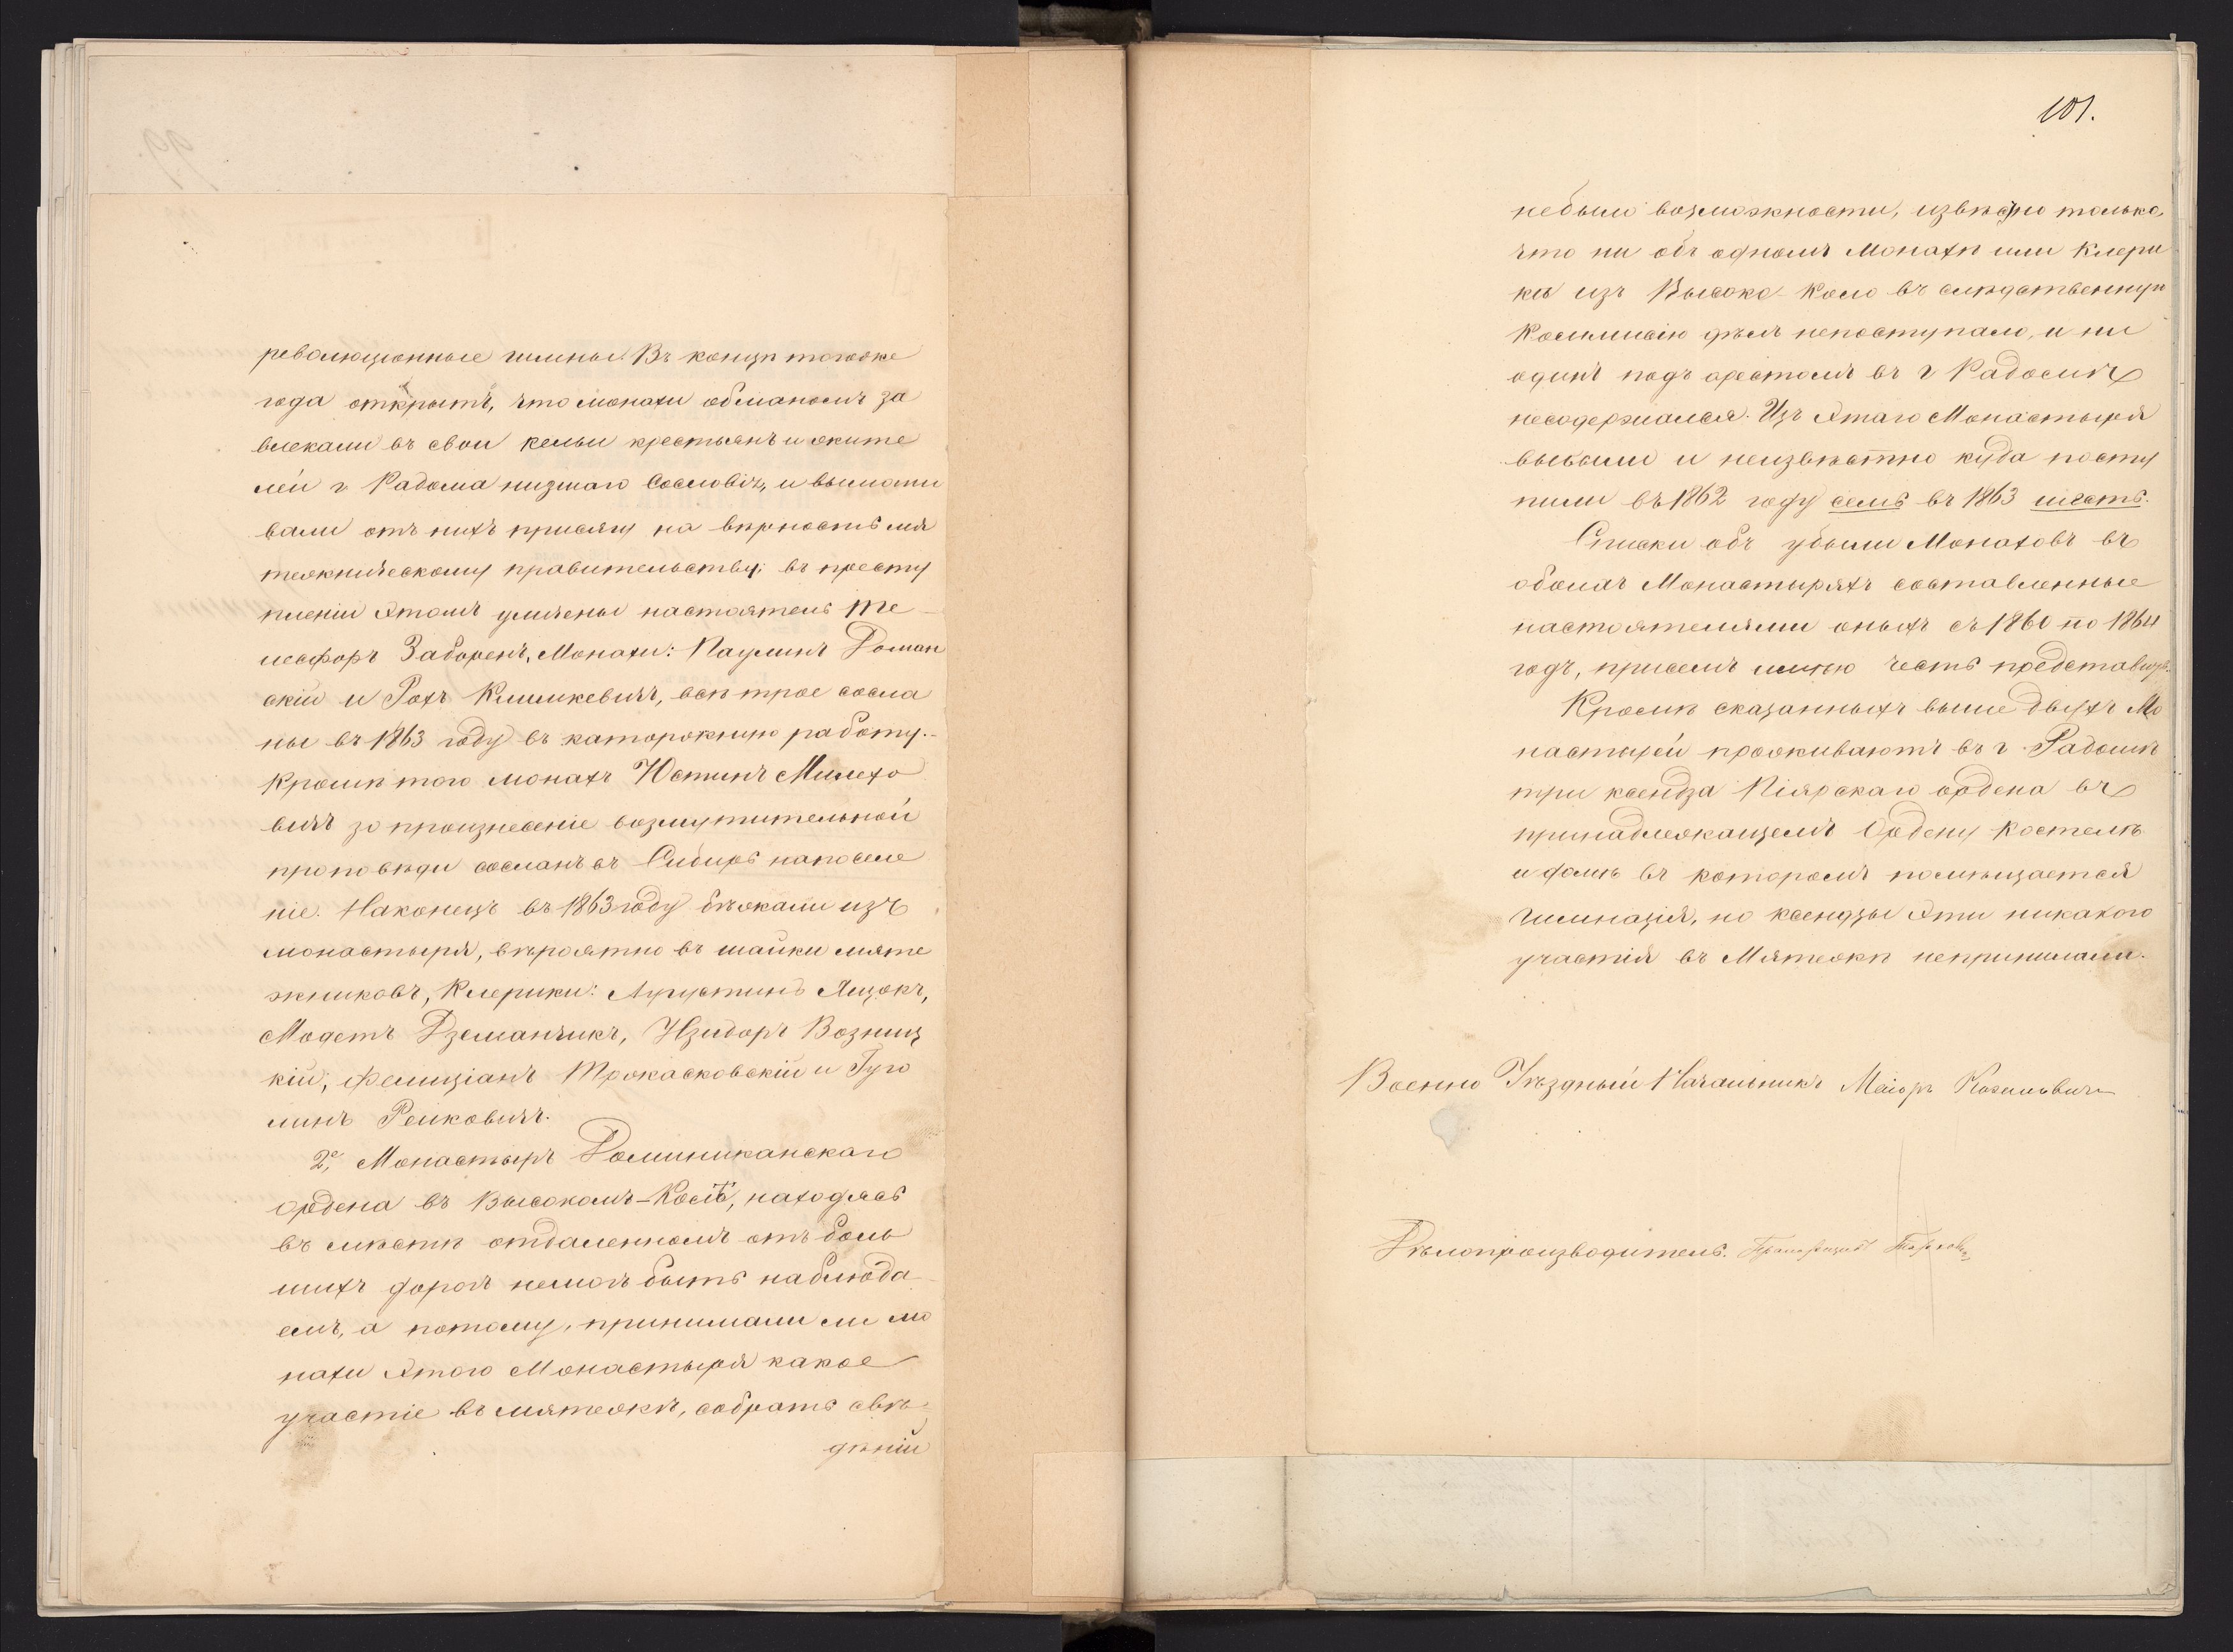 революціонные гимны. Въ концѣ тогоже
года открытъ, что монахи обманомъ за
влекали въ свои кельи крестьянъ и жите
лей г. Радома низшаго Сословія, и вымани
вали отъ нихъ присягу на вѣрность мя
тежническому правительству; въ престу
пленіи этомъ уличены настоятель Те
лесфоръ Заборекъ, Монахи: Паулинъ Доман
скій и Рохъ Климкевичъ, всѣ трое сосла
ны въ 1863 году въ каторожную работу.
Кромѣ того монахъ Юстинъ Милехо
вичъ за произнесеніе возмутительной
проповѣди сосланъ въ Сибирь напоселе
ніе. Наконецъ въ 1863 году бѣжали изъ
монастыря, вѣроятно въ шайки мяте
жниковъ, Клерики: Августинъ Ящокъ,
Модестъ Дземанчикъ, Изидоръ Возниц
кій, Фелиціанъ Тржасковскій и Гуго
линъ Рейковичъ.
2е, Монастырь Доминиканскаго
Ордена въ Высокомъ-Колѣ, находясь
въ мѣстѣ отдаленномъ отъ боль
шихъ дорогъ немогъ быть наблюда
емъ, а потому, принимали ли мо
нахи этого Монастыря какое
участіе въ мятежѣ, собрать свѣ-
дѣній
101.
небыло возможности, извѣстно только,
что ни объ одномъ Монахѣ или Клери
кѣ изъ Высоко-Коло въ слѣдственную
Коммисію дѣлъ непоступало, и ни
одинъ подъ арестомъ въ г Радомѣ
несодержался. Изъ этаго Монастыря
выбыли и неизвѣстно куда посту
пили въ 1862 году семь въ 1863 шесть.
Списки объ убыли Монаховъ въ
обоихъ Монастыряхъ составленные
настоятелями оныхъ съ 1860 по 1864
годъ, присемъ имѣю честь представить.
Кромѣ сказанныхъ выше двухъ Мо
настырей проживаютъ въ г. Радомѣ
три ксендза Піярскаго ордена въ
принадлежащемъ Ордену костелѣ
и домѣ въ которомъ помѣщается
Гимназія, но ксендзы эти никакого
участія въ Мятежѣ непринимали.
Военно Уѣздный Начальникъ Маіоръ
Дѣлопроизводитель.